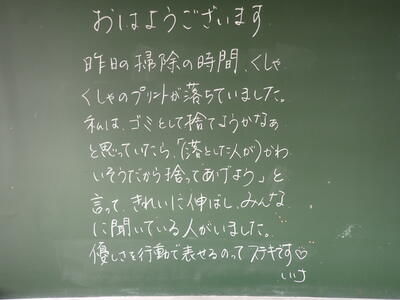 おはようございます
昨日の掃除の時間、くしゃ
くしゃのプリントが落ちていました。
私は、ゴミとして捨てようかなぁ
と思っていたら、「(落とした人が)かわ
いそうだから捨ってあげよう」と
言って、きれいに伸ばし、みんな
に聞いている人がいました。
優しさを行動で表せるのってステキです♡